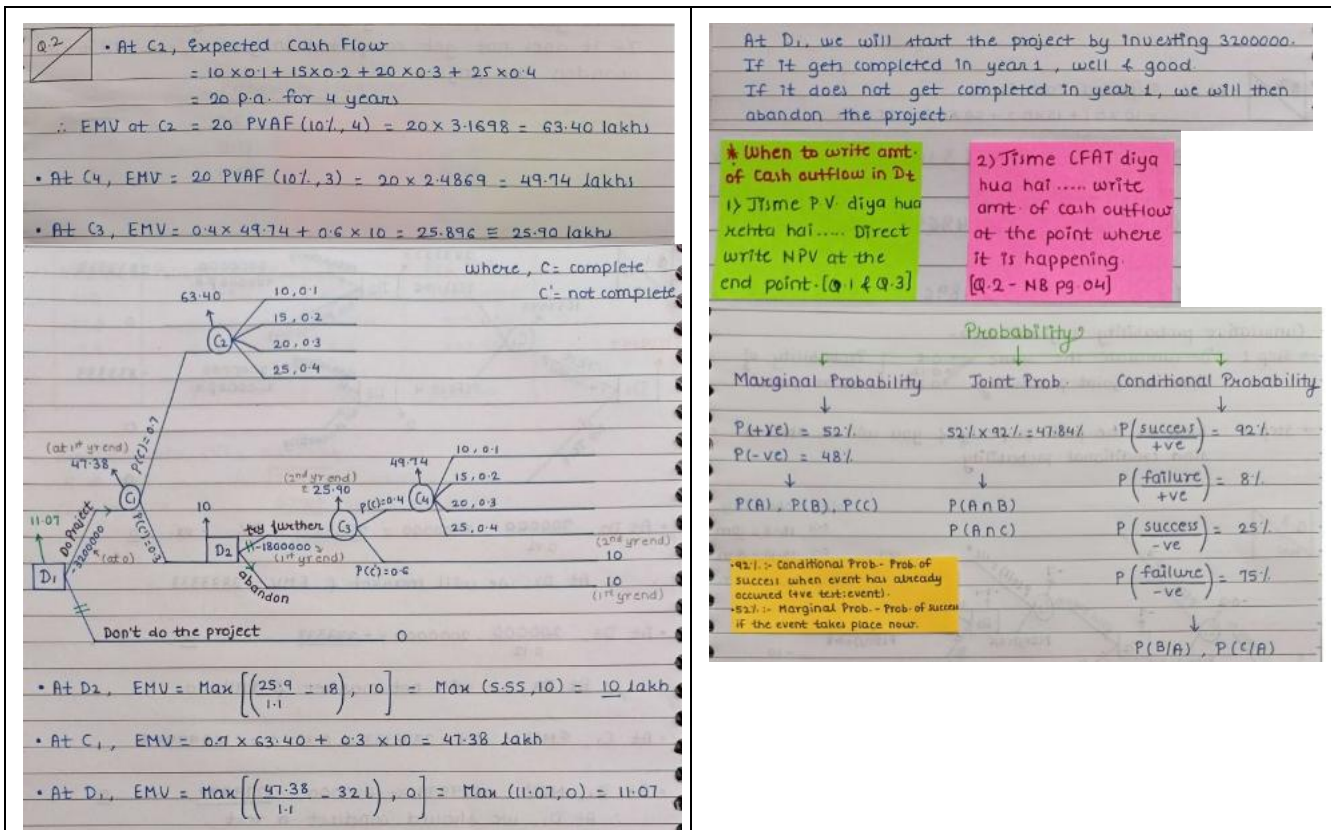 Q.2
• At C2, Expected Cash Flow
= 10 x 0.1 + 15 x 0.2 + 20 x 0.3 + 25 x 0.4
= 20 p.a. for 4 years
∴ EMV at C2 = 20 PVAF (10%, 4) = 20 x 3.1698 = 63.40 lakhs
• At C4, EMV = 20 PVAF (10%, 3) = 20 x 2.4869 = 49.74 lakhs
• At C3, EMV = 0.4 x 49.74 + 0.6 x 10 = 25.896 ≅ 25.90 lakh
where, C = complete
C' = not complete
63.40
C2
10, 0.1
15, 0.2
20, 0.3
25, 0.4
(at 1st yr end)
47.38
P(C) = 0.7
C1
P(C') = 0.3
11.07
Do Project
-3200000
(at 0)
D1
10
D2
try further
-1800000
(1st yr end)
abandon
(2nd yr end)
25.90
C3
P(C) = 0.4
P(C') = 0.6
49.74
C4
10, 0.1
15, 0.2
20, 0.3
25, 0.4
(2nd yr end)
10
10
(1st yr end)
Don't do the project
0
• At D2, EMV = Max [(25.9/1.1 - 18), 10] = Max (5.55, 10) = 10 lakh
• At C1, EMV = 0.7 x 63.40 + 0.3 x 10 = 47.38 lakh
• At D1, EMV = Max [(47.38/1.1 - 32), 0] = Max (11.07, 0) = 11.07
At D1, we will start the project by investing 3200000.
If it gets completed in year 1, well & good.
If it does not get completed in year 1, we will then
abandon the project.
* When to write amt.
of cash outflow in Dt
1) Jisme P.V. diya hua
rehta hai ..... Direct
write NPV at the
end point. [Q.1 & Q.3]
2) Jisme CFAT diya
hua hai ..... write
amt. of cash outflow
at the point where
it is happening.
[Q.2 - NB pg. 04]
Probability
Marginal Probability
Joint Prob.
Conditional Probability
P(+ve) = 52%
P(-ve) = 48%
P(A), P(B), P(C)
52% x 92% = 47.84%
P(A∩B)
P(A∩C)
P(success/+ve) = 92%
P(failure/+ve) = 8%
P(success/-ve) = 25%
P(failure/-ve) = 75%
P(B/A), P(C/A)
•92% :- Conditional Prob.- Prob. of
success when event has already
occured (+ve test:event).
•52% :- Marginal Prob. - Prob. of success
if the event takes place now.